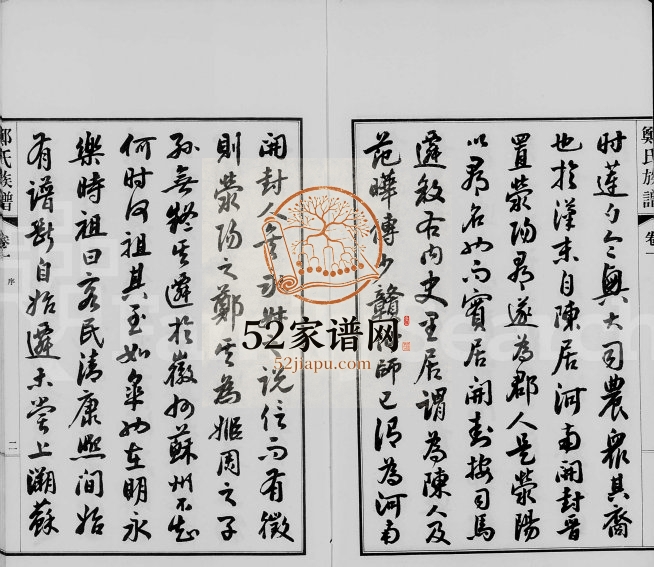 鄭氏族譜
卷一
時遂與大司農眾其裔
也於漢末自陳居河南開封晉
置滎陽郡遂為郡人是滎陽
以郡名而實居開封按司馬
遷敘右內史里居謂為陳人及
范曄傳少贛師已謂為河南
開封人說信而有徵
則滎陽之鄭為姬周之子
孫無疑遷於徽州蘇州不知
何時何祖其至如皋也在明永
樂時祖曰客民清康熙間始
有譜斷自始遷未嘗上溯蘇
鄭氏族譜
卷一
序
二
52家谱网
52jiapu.com